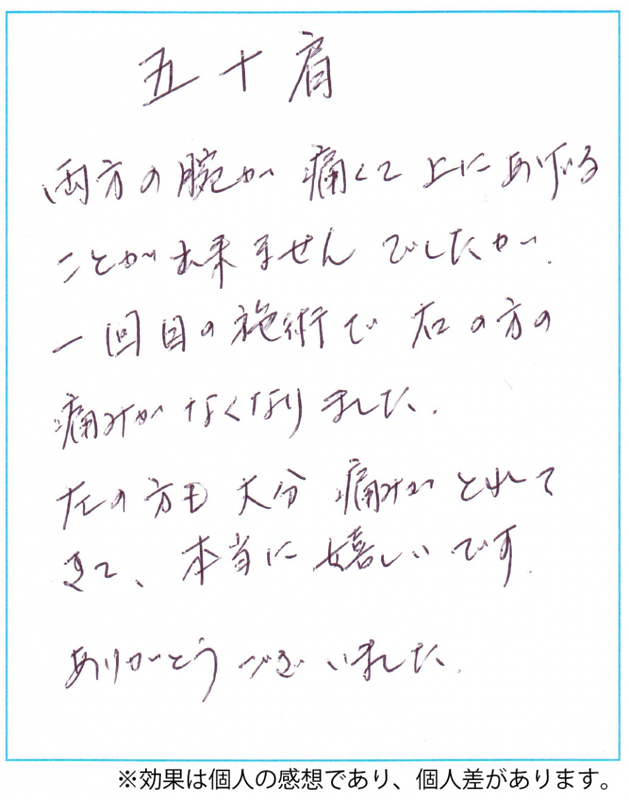 五十肩
両方の腕が痛くて上にあげる
ことが出来ませんでしたが、
一回目の施術で右の方の
痛みがなくなりました。
左の方も大分痛みがとれて
きて、本当に嬉しいです。
ありがとうございました。
※効果は個人の感想であり、個人差があります。